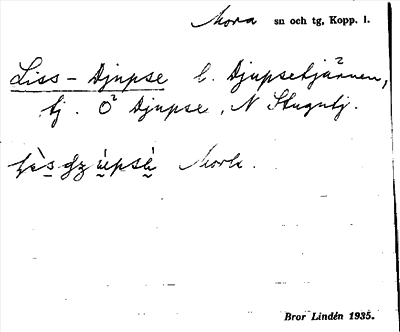 Mora sn och tg, Kopp. l.
Liss-Djupse l. Djupsetjärnen,
tj. O² Djupse, N Stugutj.
Mork.
Bror Lindén 1935.